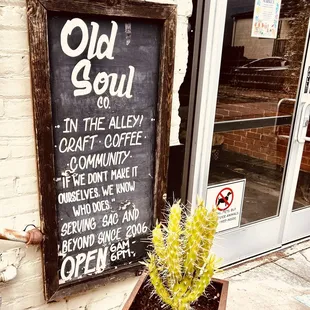 Old
Soul
CO.
IN THE ALLEY!
CRAFT · COFFEE ·
COMMUNITY·
"IF WE DON'T MAKE IT
OURSELVES, WE KNOW
WHO DOES."
SERVING SAC AND
BEYOND SINCE 2006
OPEN 6AM-
6PM